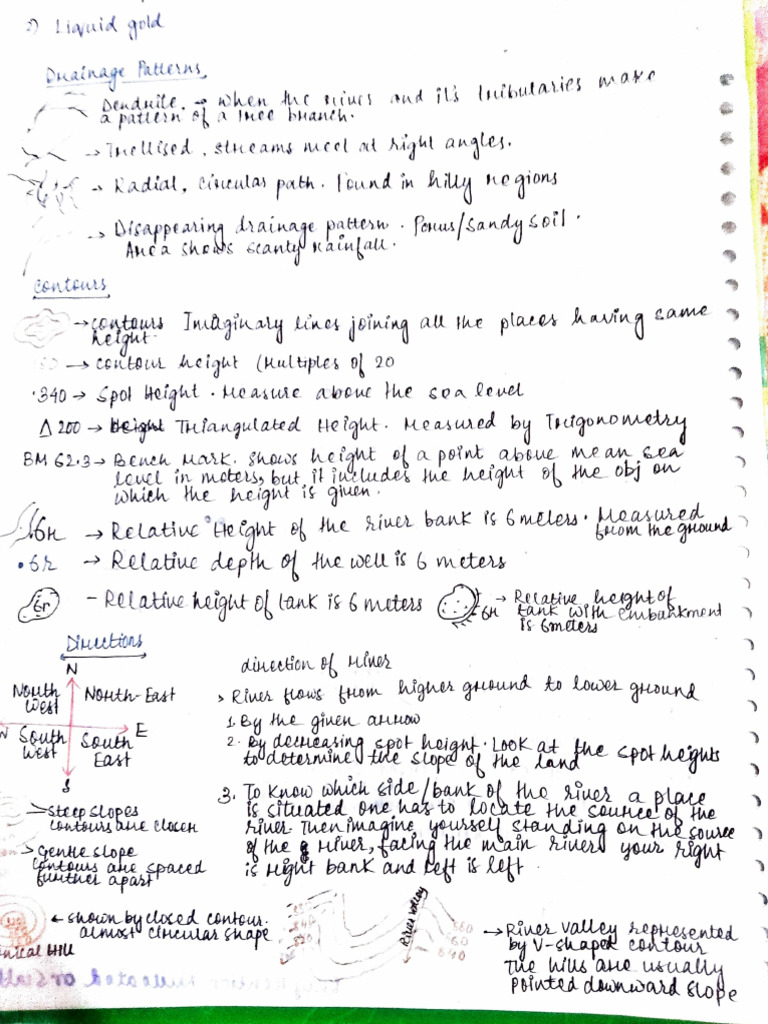 2) Liquid gold
Drainage Patterns
Dendrite. → When the rivers and it's tributaries make
a pattern of a tree branch.
→ Trellised, streams meet at right angles.
→ Radial, circular path. Found in hilly regions
→ Disappearing drainage pattern. Porus/Sandy soil.
Area shows scanty rainfall.
Contours
→ contours Imaginary lines joining all the places having same
height.
→ contour height (Multiples of 20
.340 → Spot Height. Measure above the sea level
△ 200 → Triangulated Height. Measured by Trigonometry
BM 62.3 → Bench Mark. shows height of a point above mean sea
level in meters, but it includes the height of the obj on
which the height is given.
6r → Relative Height of the river bank is 6 meters. Measured
from the ground
.6r → Relative depth of the well is 6 meters
6r - Relative height of tank is 6 meters
6r → Relative height of
tank with embankment
is 6meters
Directions
N
North West
North-East
W
E
South West
South East
S
direction of river
→ River flows from higher ground to lower ground
1. By the given arrow
2. By decreasing spot height. Look at the spot heights
to determine the slope of the land
3. To know which side/bank of the river a place
is situated one has to locate the source of the
river. Then imagine yourself standing on the source
of the river, facing the main river your right
is right bank and left is left.
→ Steep slopes
contours are closer
→ Gentle slope
contours are spaced
further apart
← shown by closed contour.
almost circular shape
nical Hill
River valley
360
60
640
→ River valley represented
by V-shaped contour
The hills are usually
pointed downward slope